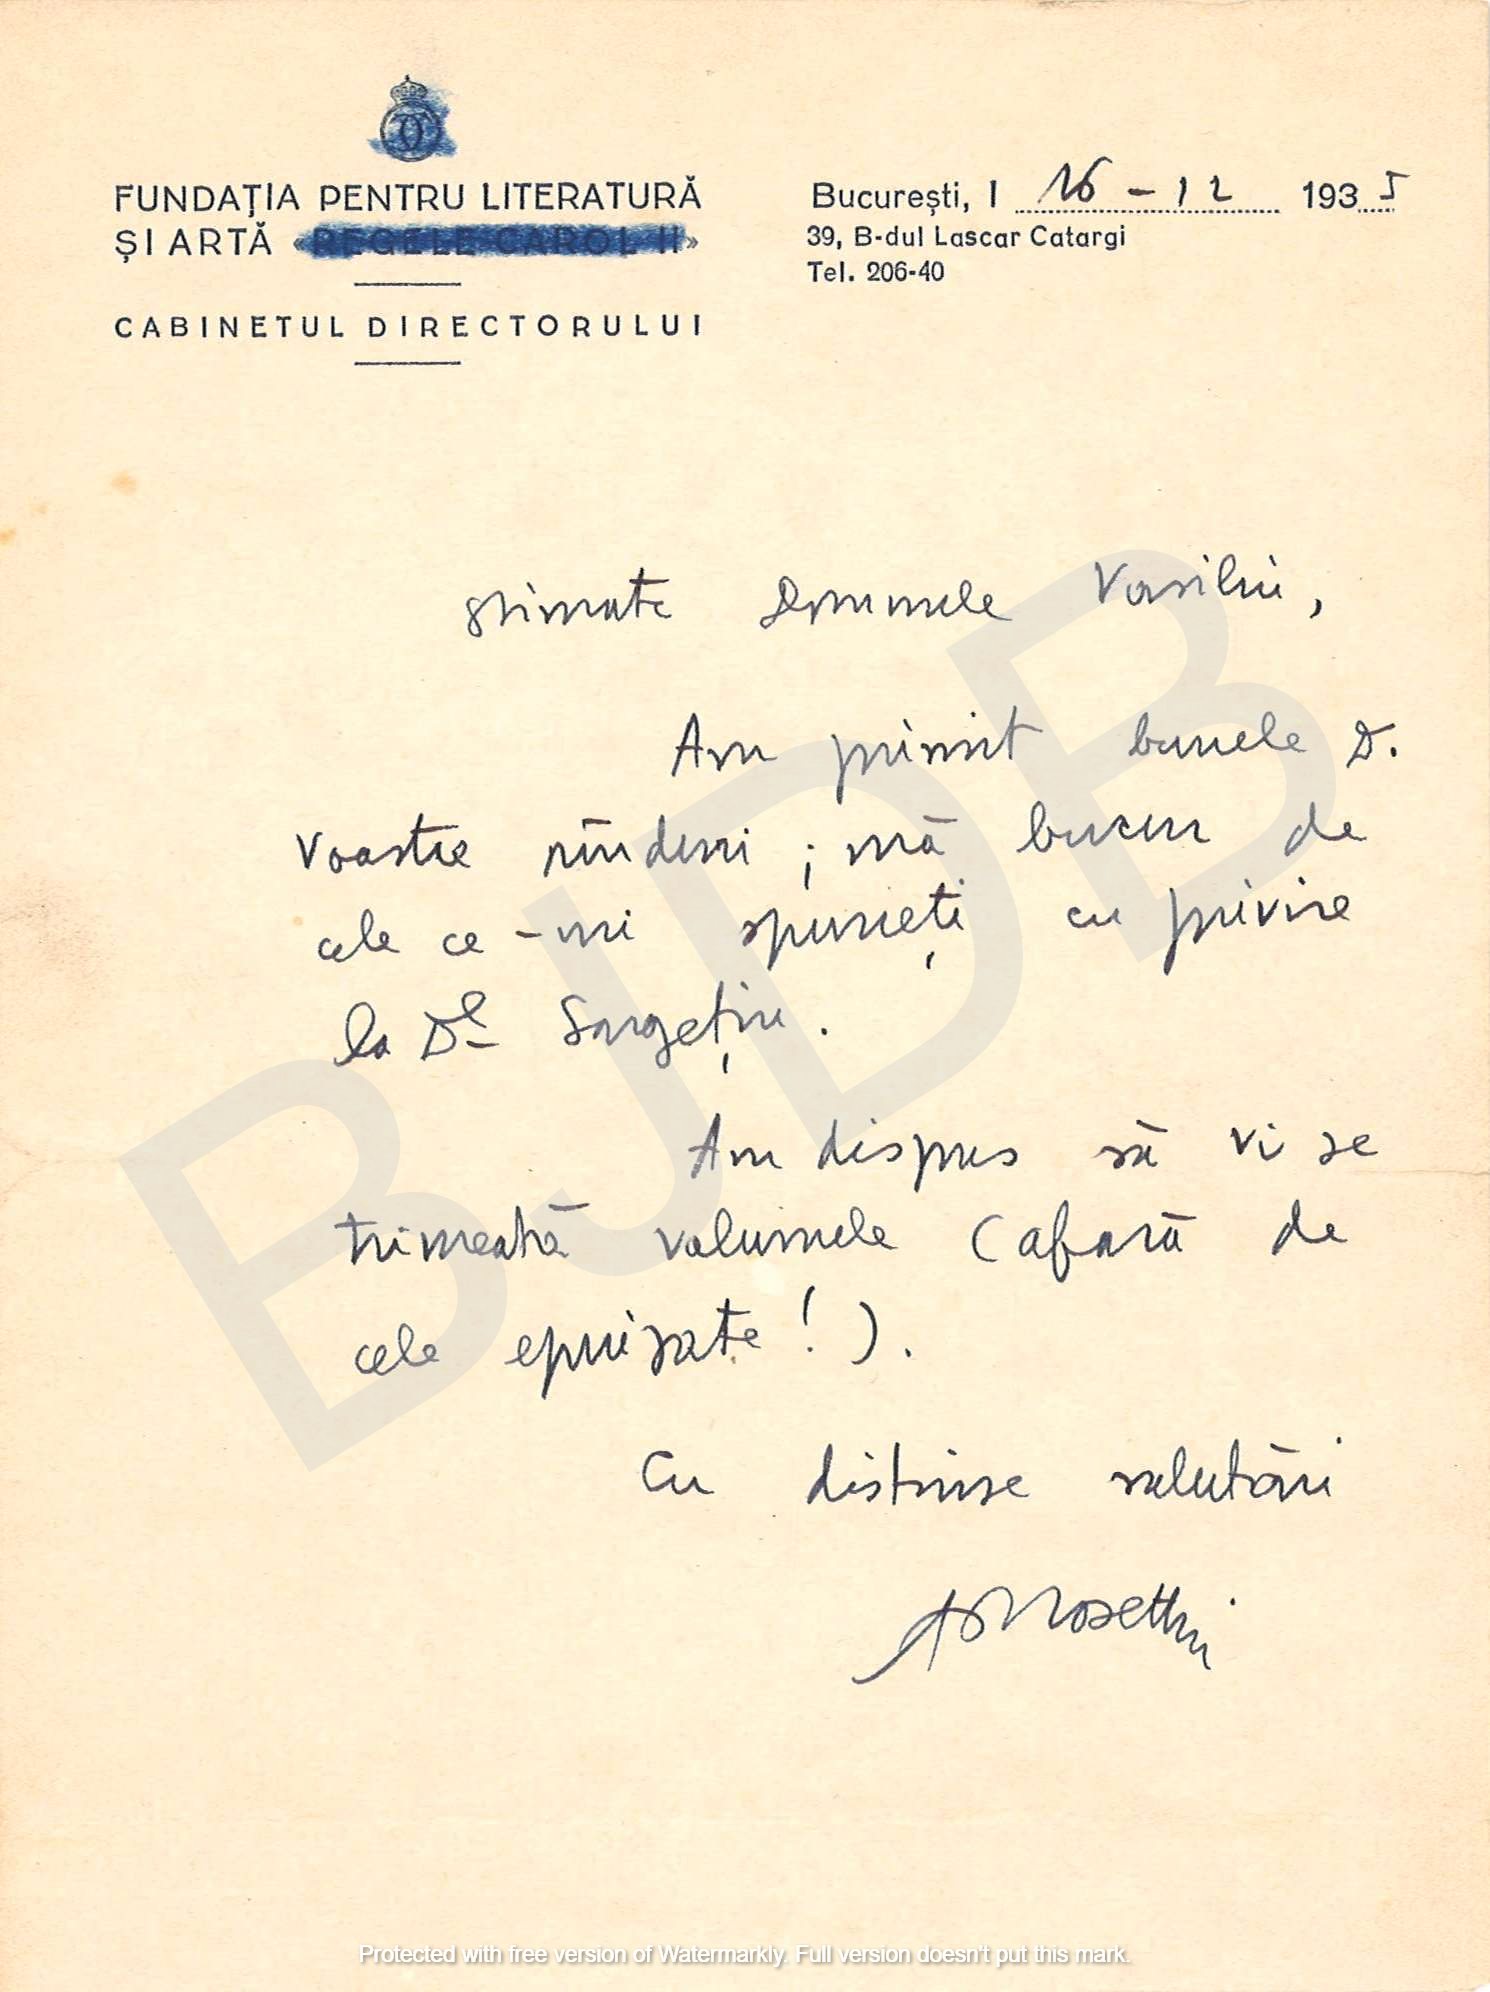 FUNDAȚIA PENTRU LITERATURĂ
ȘI ARTĂ «REGELE CAROL II»
CABINETUL DIRECTORULUI
București, I 16 - 12 1935
39, B-dul Lascar Catargi
Tel. 206-40
Stimate Domnule Vasiliu,
Am primit bunele D.
Voastre rînduri ; mă bucur de
cele ce-mi spuneți cu privire
la Dl Sargețiu.
Am dispus să vi se
trimeată volumele (afară de
cele epuizate!).
Cu distinse salutări
A Rosetti
BJDB
Protected with free version of Watermarkly. Full version doesn't put this mark.